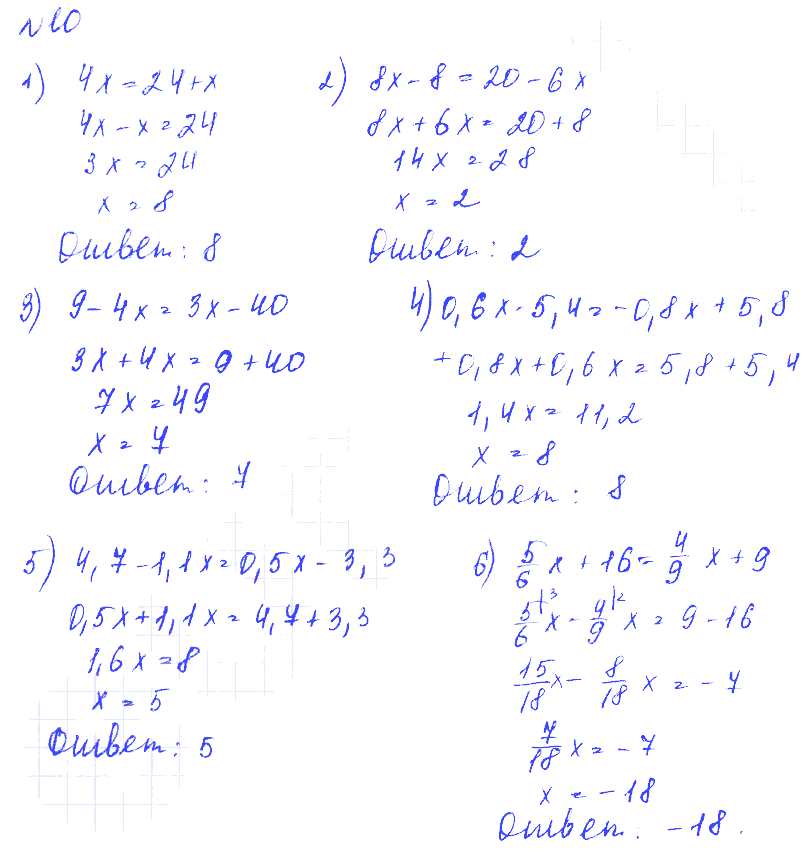 №10
1) 4x = 24 + x
4x - x = 24
3x = 24
x = 8
Ответ: 8
2) 8x - 8 = 20 - 6x
8x + 6x = 20 + 8
14x = 28
x = 2
Ответ: 2
3) 9 - 4x = 3x - 40
3x + 4x = 9 + 40
7x = 49
x = 7
Ответ: 7
4) 0,6x - 5,4 = -0,8x + 5,8
+0,8x + 0,6x = 5,8 + 5,4
1,4x = 11,2
x = 8
Ответ: 8
5) 4,7 - 1,1x = 0,5x - 3,3
0,5x + 1,1x = 4,7 + 3,3
1,6x = 8
x = 5
Ответ: 5
6) 5/6 x + 16 = 4/9 x + 9
5/6|³ x - 4/9|² x = 9 - 16
15/18 x - 8/18 x = -7
7/18 x = -7
x = -18
Ответ: -18.